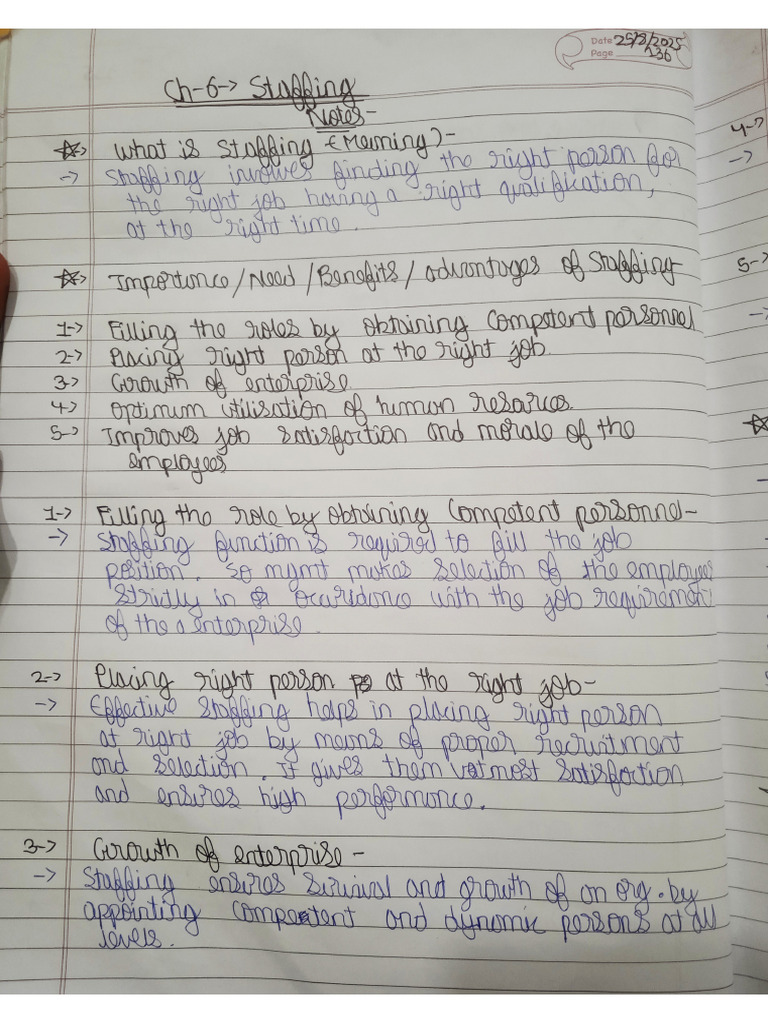 Date 25/8/2025
Page 136
Ch-6-> Staffing
Notes-
☆-> What is Staffing (Meaning)-
-> Staffing involves finding the right person for
the right job having a right qualification,
at the right time.
☆-> Importance/Need/Benefits/advantages of Staffing
1-> Filling the roles by obtaining competent personnel
2-> Placing right person at the right job.
3-> Growth of enterprise.
4-> Optimum utilisation of human resources.
5-> Improves job satisfaction and morale of the
employees
1-> Filling the role by obtaining competent personnel-
-> Staffing function is required to fill the job
position. So mgmt makes selection of the employees
strictly in accordance with the job requirement
of the enterprise.
2-> Placing right person at the right job-
-> Effective staffing helps in placing right person
at right job by means of proper recruitment
and selection. It gives them utmost satisfaction
and ensures high performance.
3-> Growth of enterprise-
-> Staffing ensures survival and growth of an org. by
appointing competent and dynamic persons at all
levels.
4->
->
5->
->
☆